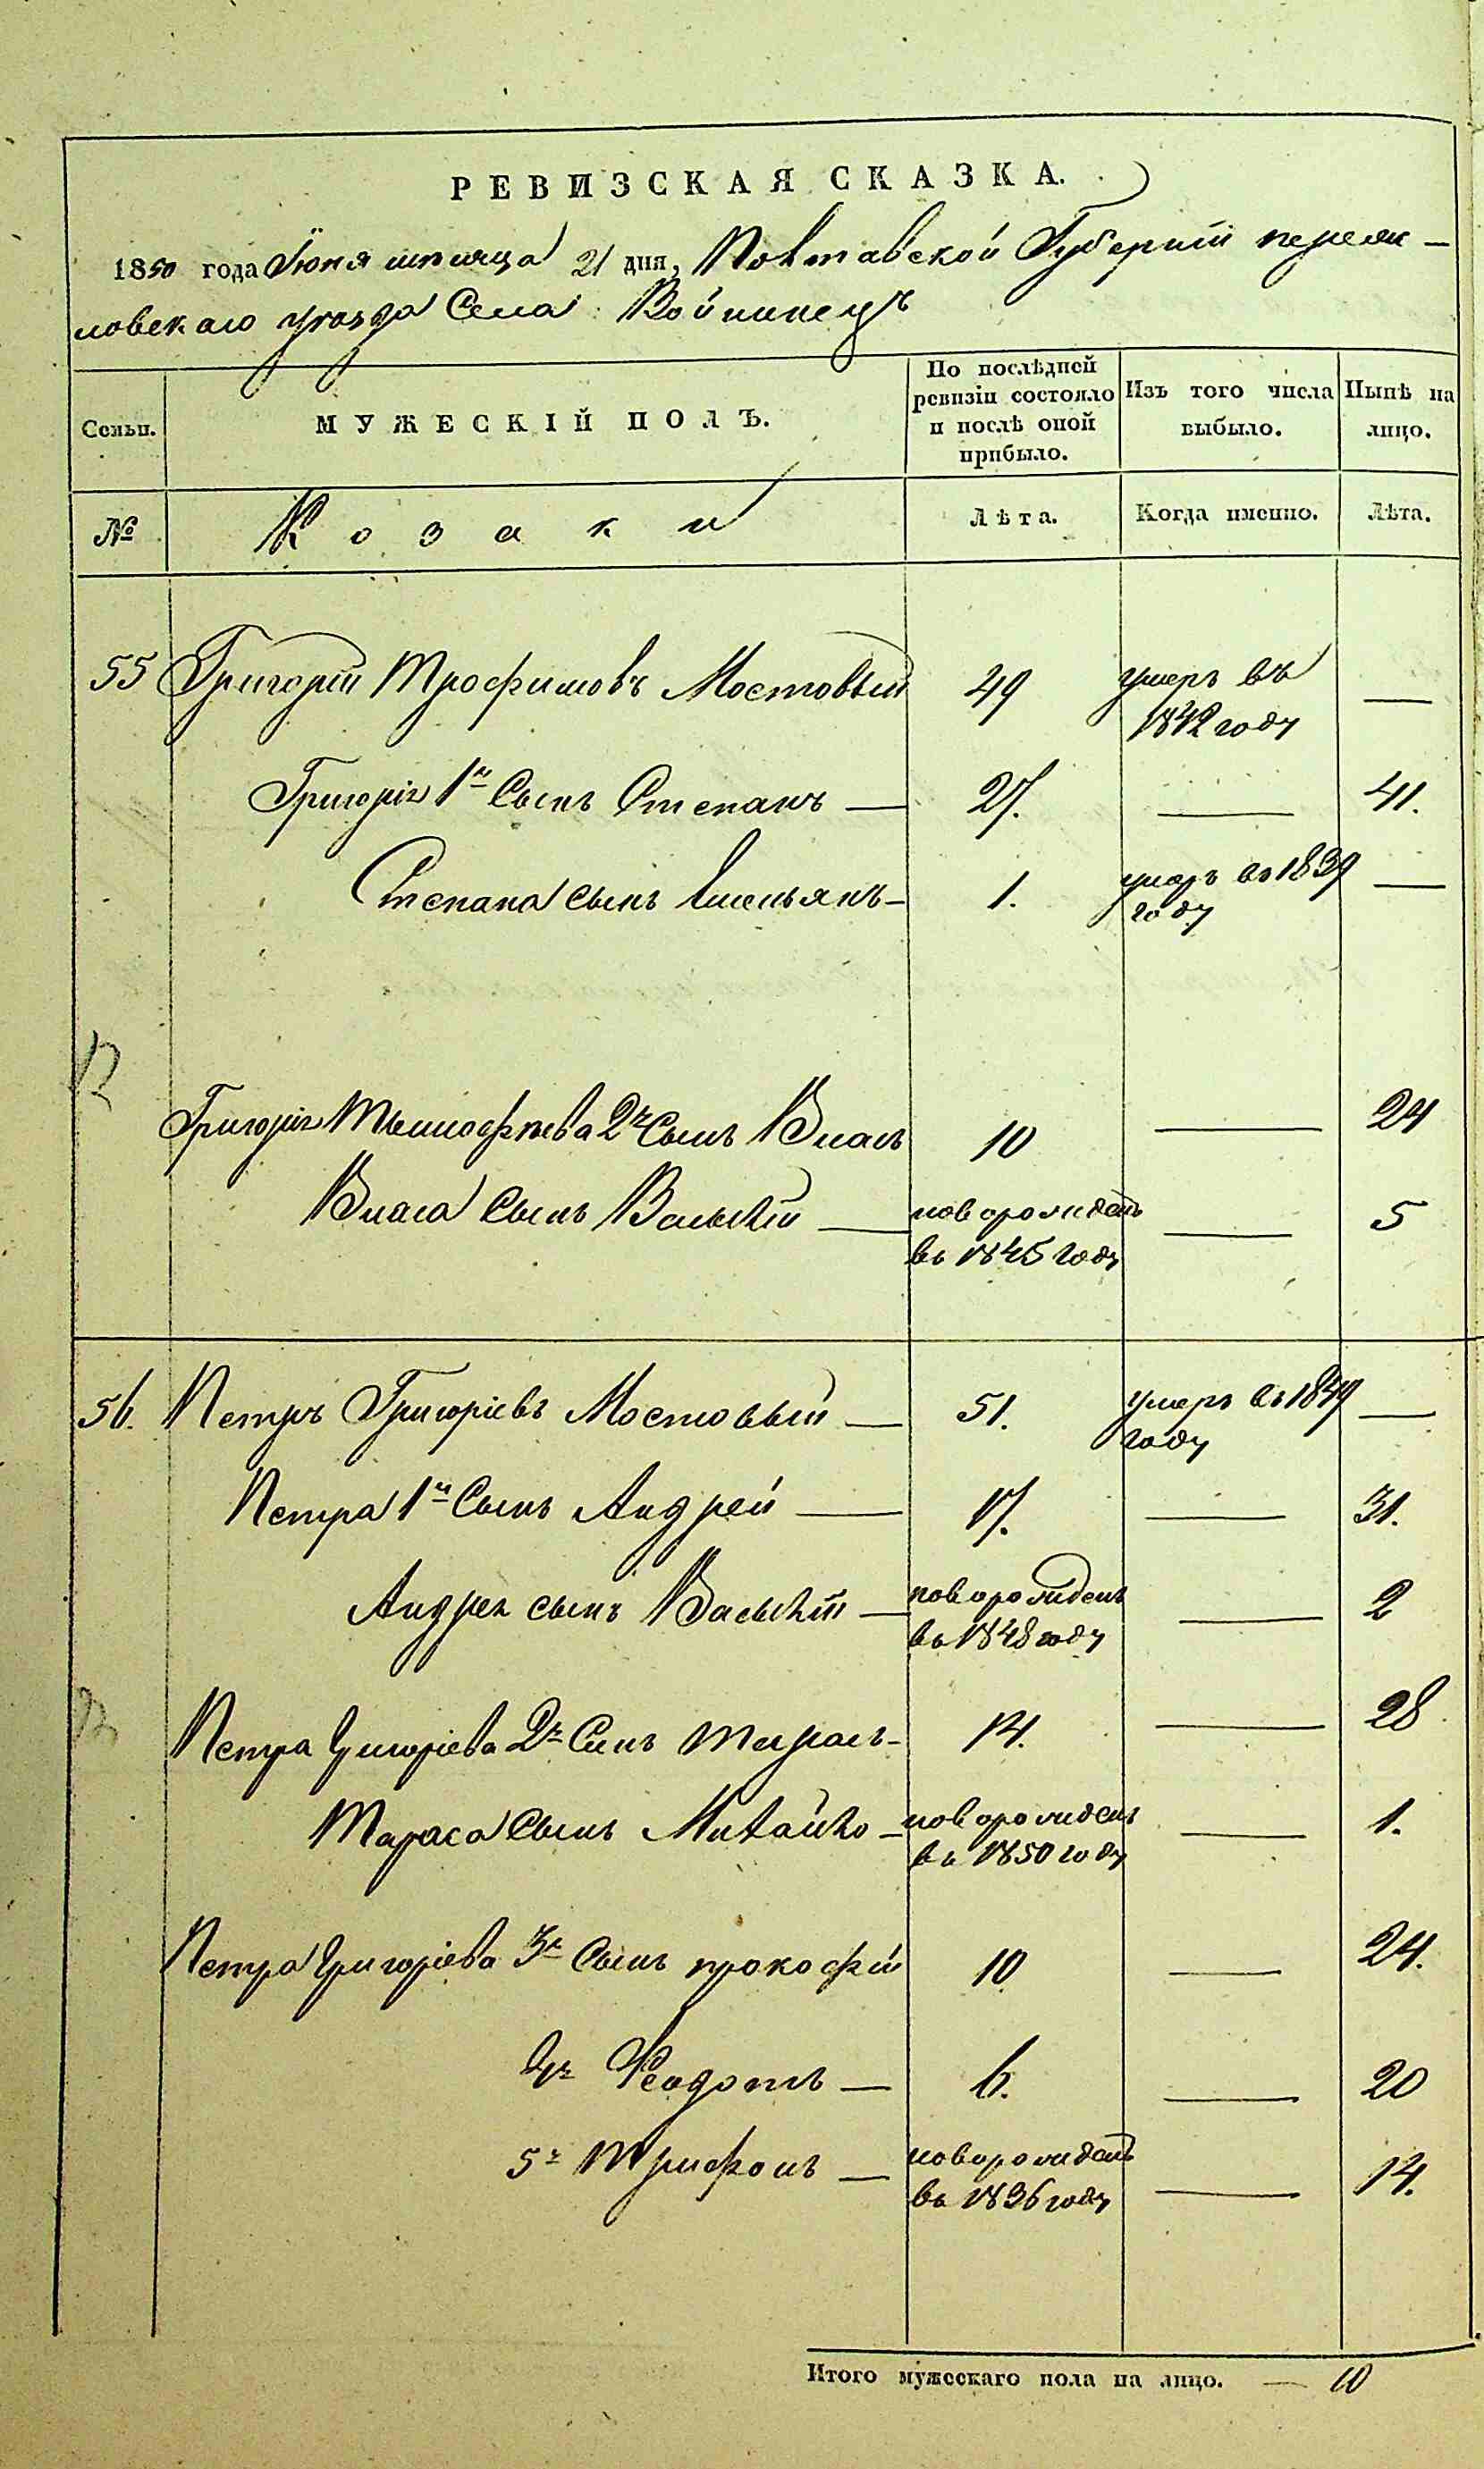 РЕВИЗСКАЯ СКАЗКА.
1850 года Іюня мѣсяца 21 дня, Полтавской Губерніи переяс-
ловскаго уѣзда Села Войнинецъ
Семьи.
МУЖЕСКІЙ ПОЛЪ.
По послѣдней ревизіи состояло и послѣ оной прибыло.
Изъ того числа выбыло.
Нынѣ на лицо.
№
Козаки
Лѣта.
Когда именно.
Лѣта.
55 Григорій Трофимовъ Мостовый 49 умеръ въ —
1842 году
Григорія 1й Сынъ Степанъ — 27. — 41.
Степана сынъ Емельянъ — 1. умеръ въ 1839 —
году
Григорія Тимофѣева 2й Сынъ Власъ 10 — 24
Власа Сынъ Василій — новорожденъ — 5
въ 1845 году
56. Петръ Григоріевъ Мостовый — 51. умеръ въ 1849 —
году
Петра 1й Сынъ Андрей — 17. — 31.
Андрея сынъ Василій — новорожденъ — 2
въ 1848 году
Петра Григоріева 2й Сынъ Тарасъ — 14. — 28
Тараса Сынъ Михайло — новорожденъ — 1.
въ 1850 году
Петра Григоріева 3й Сынъ прокофій 10 — 24.
4й Феодотъ — 6. — 20
5й Трифонъ — новорожденъ — 14.
въ 1836 году
Итого мужескаго пола на лицо. — 10